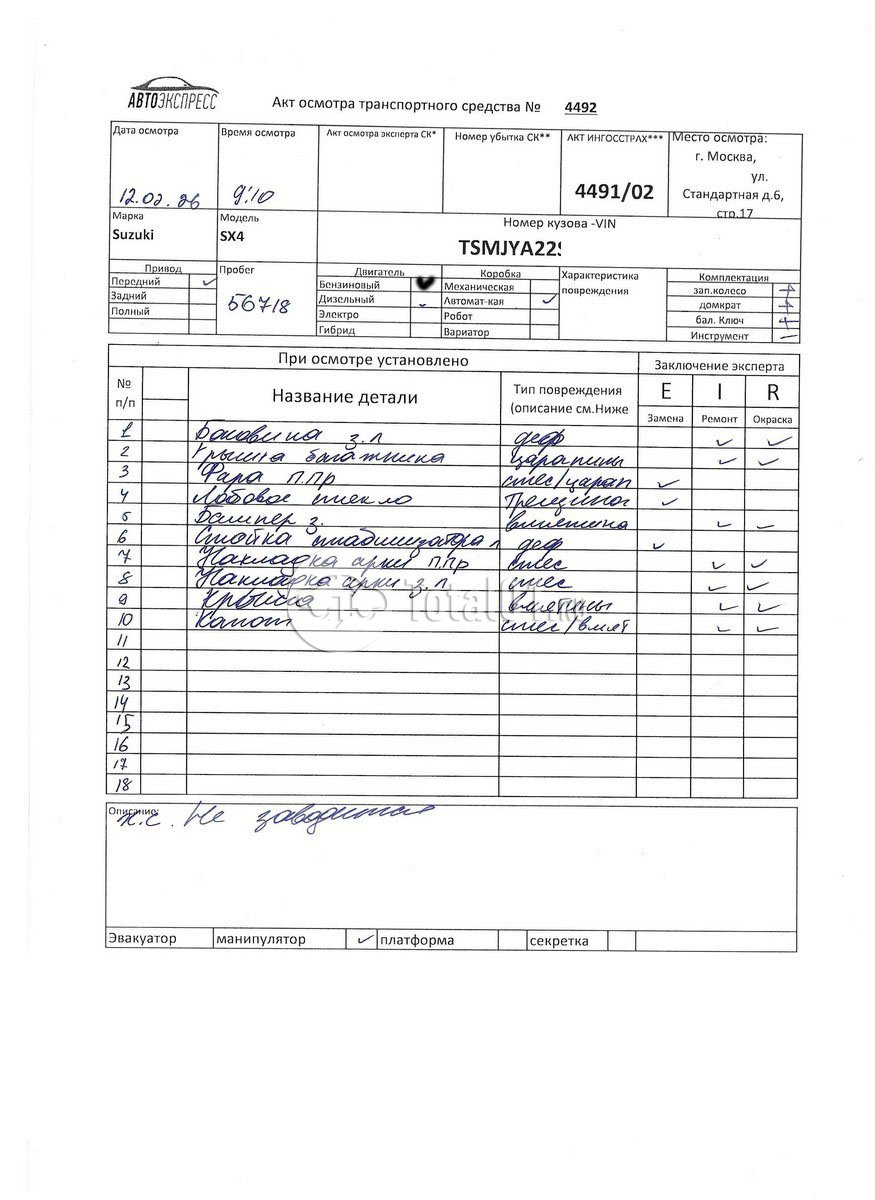 АВТОЭКСПРЕСС
Акт осмотра транспортного средства № 4492
Дата осмотра
Время осмотра
Акт осмотра эксперта СК*
Номер убытка СК**
АКТ ИНГОССТРАХ***
Место осмотра:
г. Москва,
ул.
Стандартная д.6,
стр.17
12.02.26
9:10
4491/02
Марка
Модель
Номер кузова -VIN
Suzuki
SX4
TSMJYA22S
Привод
Пробег
Двигатель
Коробка
Характеристика
повреждения
Комплектация
Передний
Бензиновый
Механическая
зап.колесо
Задний
56718
Дизельный
Автомат-кая
домкрат
Полный
Электро
Робот
бал. Ключ
Гибрид
Вариатор
Инструмент
При осмотре установлено
Заключение эксперта
№
п/п
Название детали
Тип повреждения
(описание см.Ниже
E I R
Замена Ремонт Окраска
1 Боковина з.л деф
2 Крышка багажника царапины
3 Фара п.пр стес/царап
4 Лобовое стекло Трещина
5 Бампер з. вмятина
6 Стойка стабилизатора л деф
7 Накладка арки п.пр стес
8 Накладка арки з.л стес
9 Крыша вмятины
10 Капот стес/вмят
11
12
13
14
15
16
17
18
Описание:
х.с. Не заводится
Эвакуатор манипулятор платформа секретка